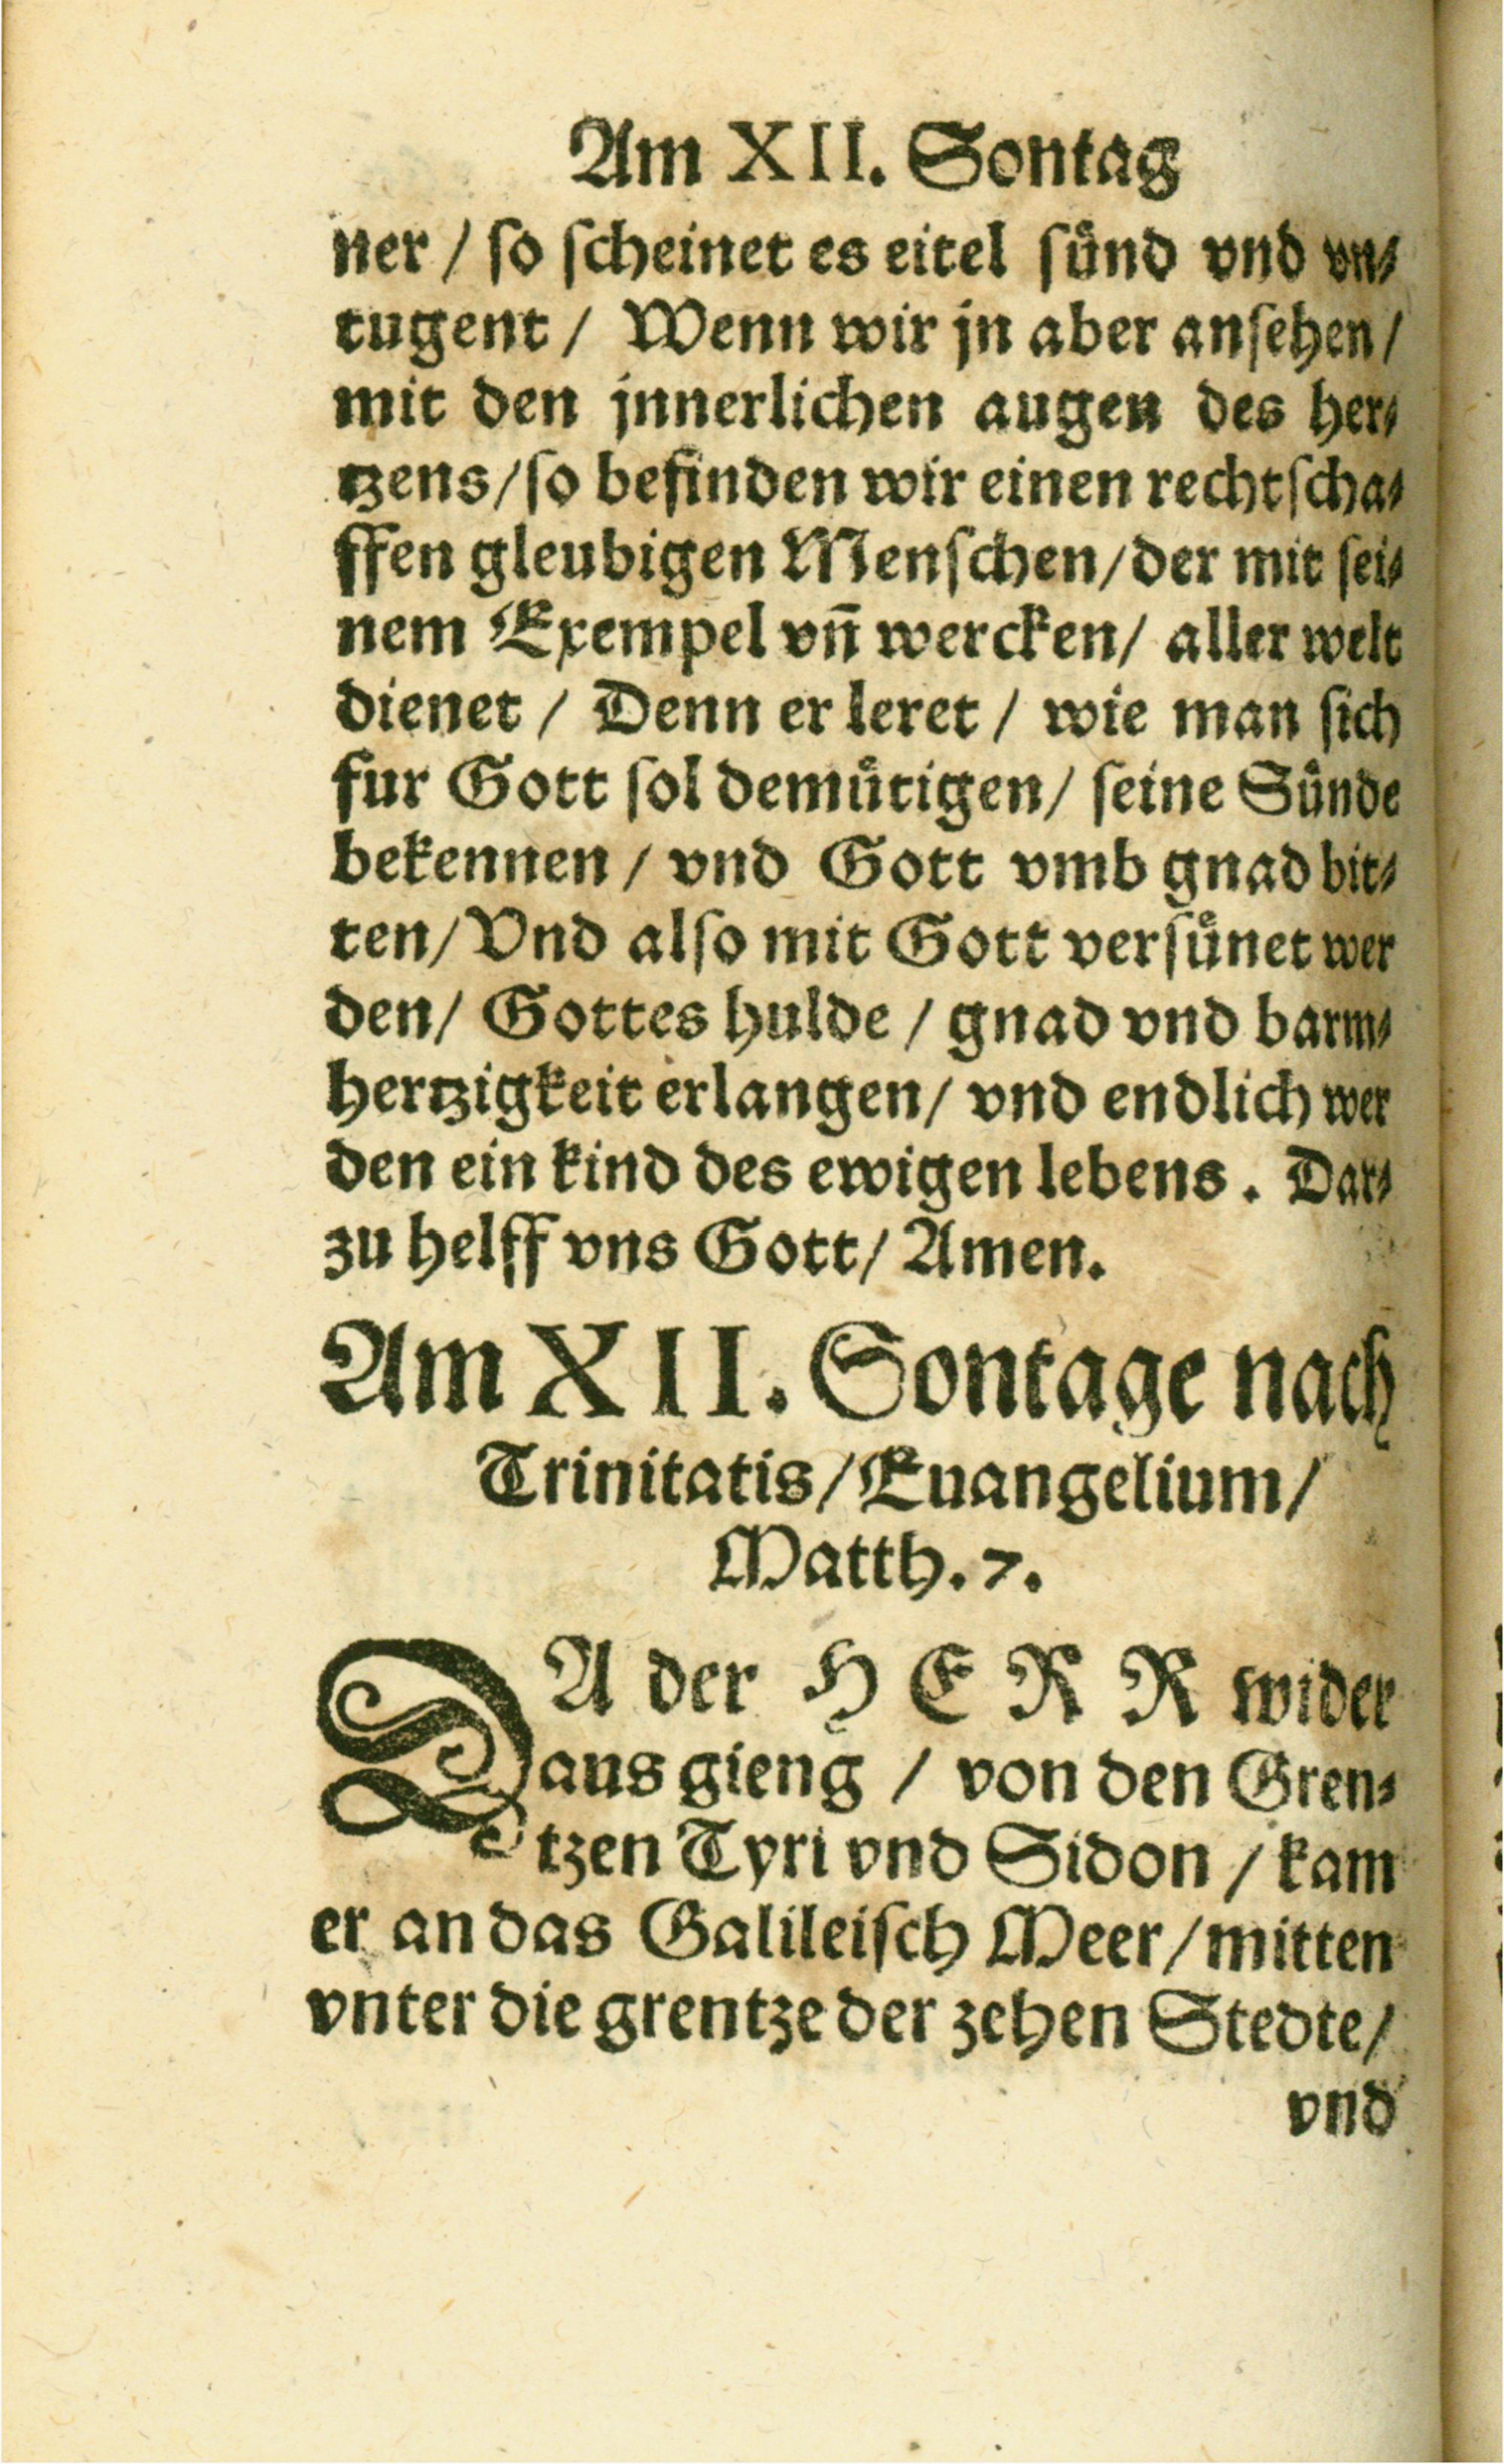 Am XII. Sontag
ner / ſo ſcheinet es eitel ſuͤnd vnd vn⸗
tugent / Wenn wir jn aber anſehen /
mit den jnnerlichen augen des her⸗
tzens / ſo befinden wir einen rechtſcha⸗
ffen gleubigen Menſchen / der mit ſei⸗
nem Exempel vn̄ wercken / aller welt
dienet / Denn er leret / wie man ſich
fur Gott ſol demuͤtigen / ſeine Suͤnde
bekennen / vnd Gott vmb gnad bit⸗
ten / Vnd alſo mit Gott verſuͤnet wer
den / Gottes hulde / gnad vnd barm⸗
hertzigkeit erlangen / vnd endlich wer
den ein kind des ewigen lebens . Dar⸗
zu helff vns Gott / Amen.
Am XII. Sontage nach
Trinitatis / Euangelium /
Matth. 7.
DA der HERR wider
aus gieng / von den Gren⸗
tzen Tyri vnd Sidon / kam
er an das Galileiſch Meer / mitten
vnter die grentze der zehen Stedte /
vnd